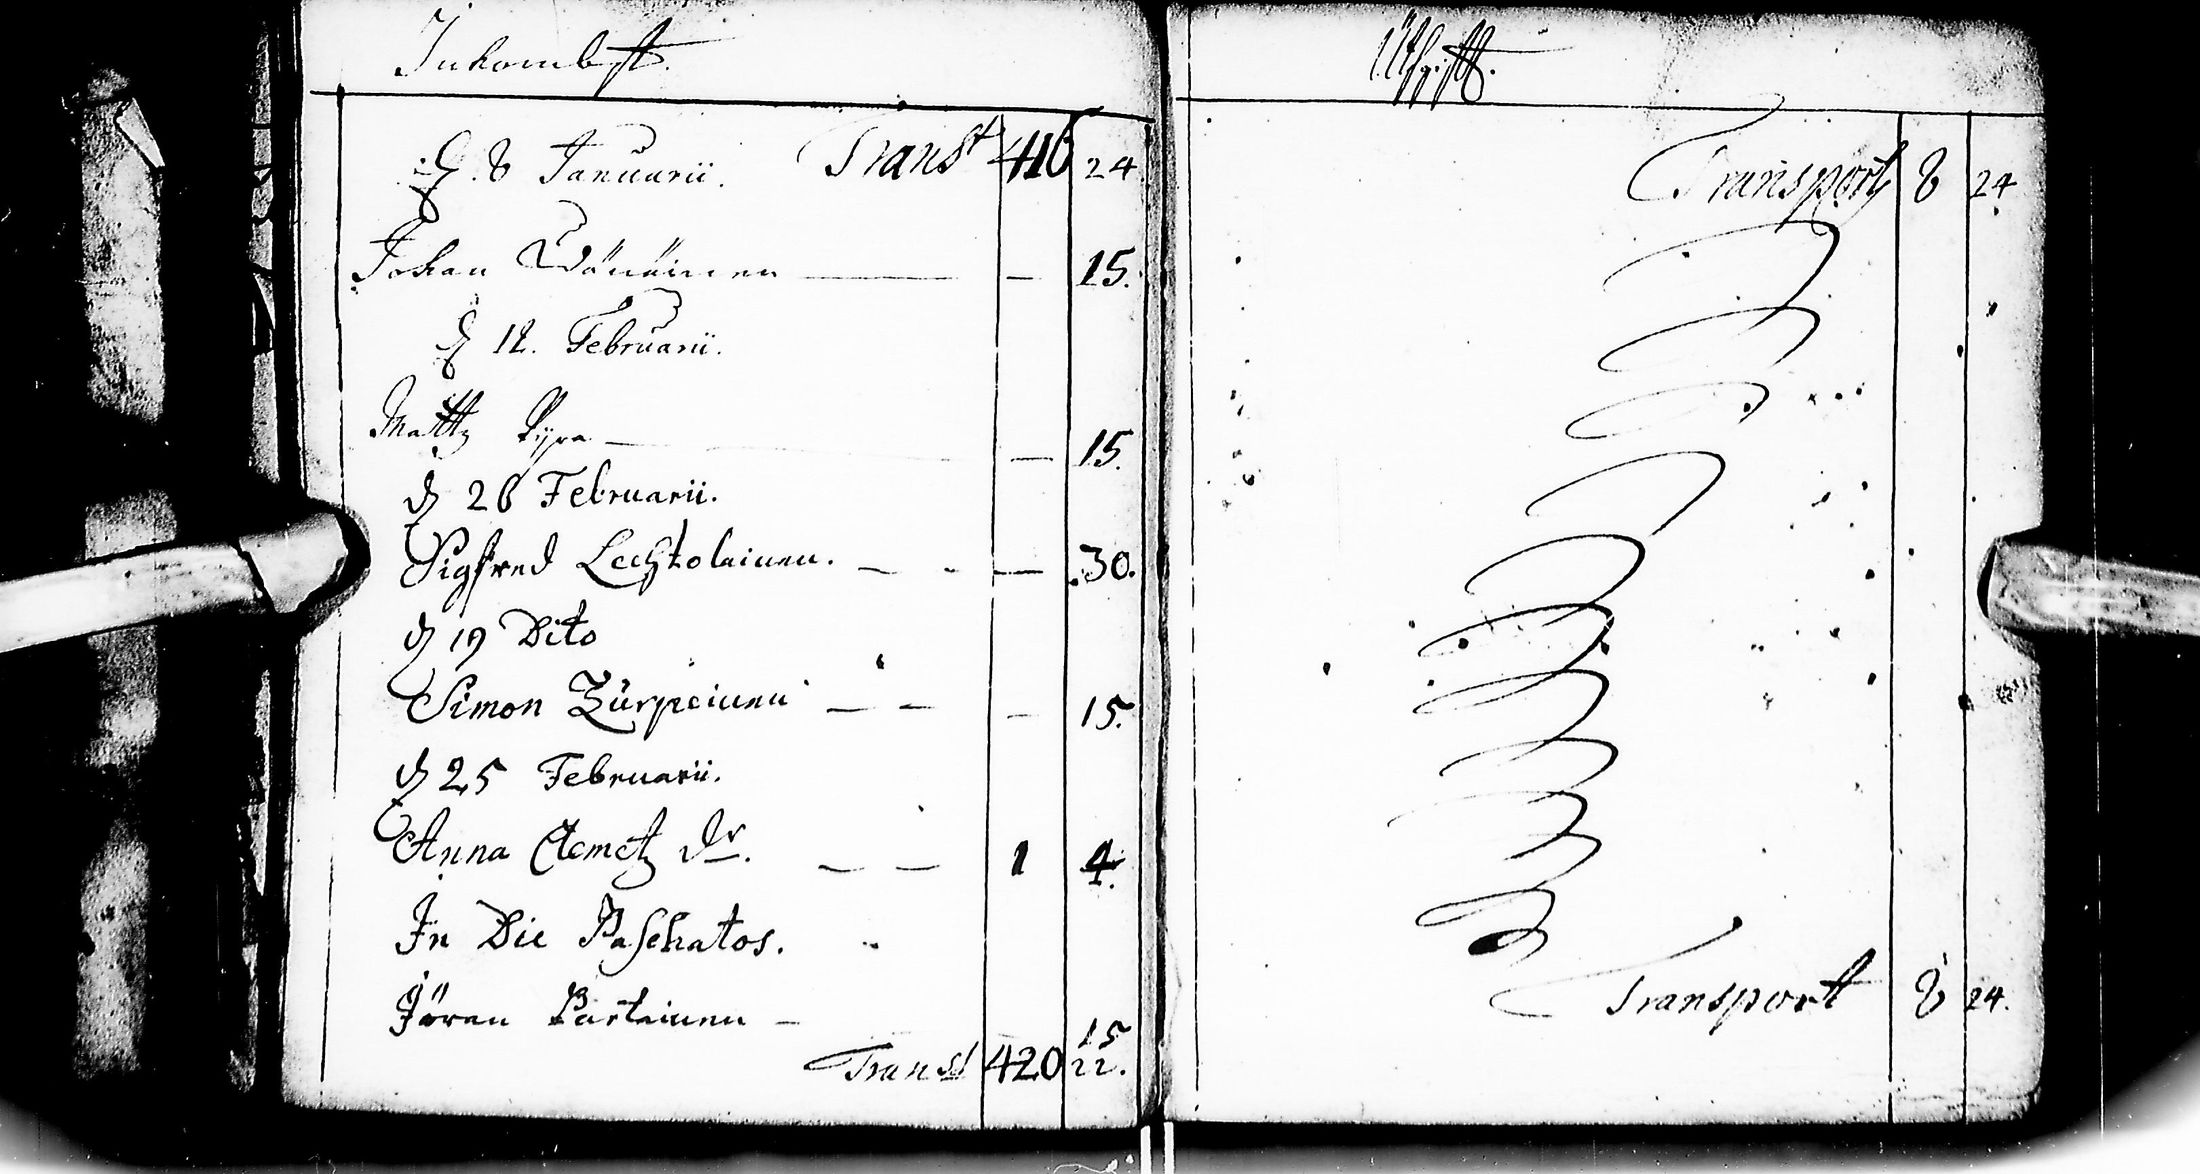 Inkombst.
d. 8 Januarii. Transt 416 24.
Johan Wänäinen — 15.
d 12. Februarii.
Matts Pyra — 15.
d 26 Februarii.
Sigfred Lechtolainen. — 30.
d 19 Dito
Simon Zurpeinen — 15.
d 25 Februarii.
Anna Clemetz dr. — 1 4.
In Die Paschatos.
Jöran Partainen — 15
Transt 420 22.
Utgift.
Transport 8 24
Transport 8 24.